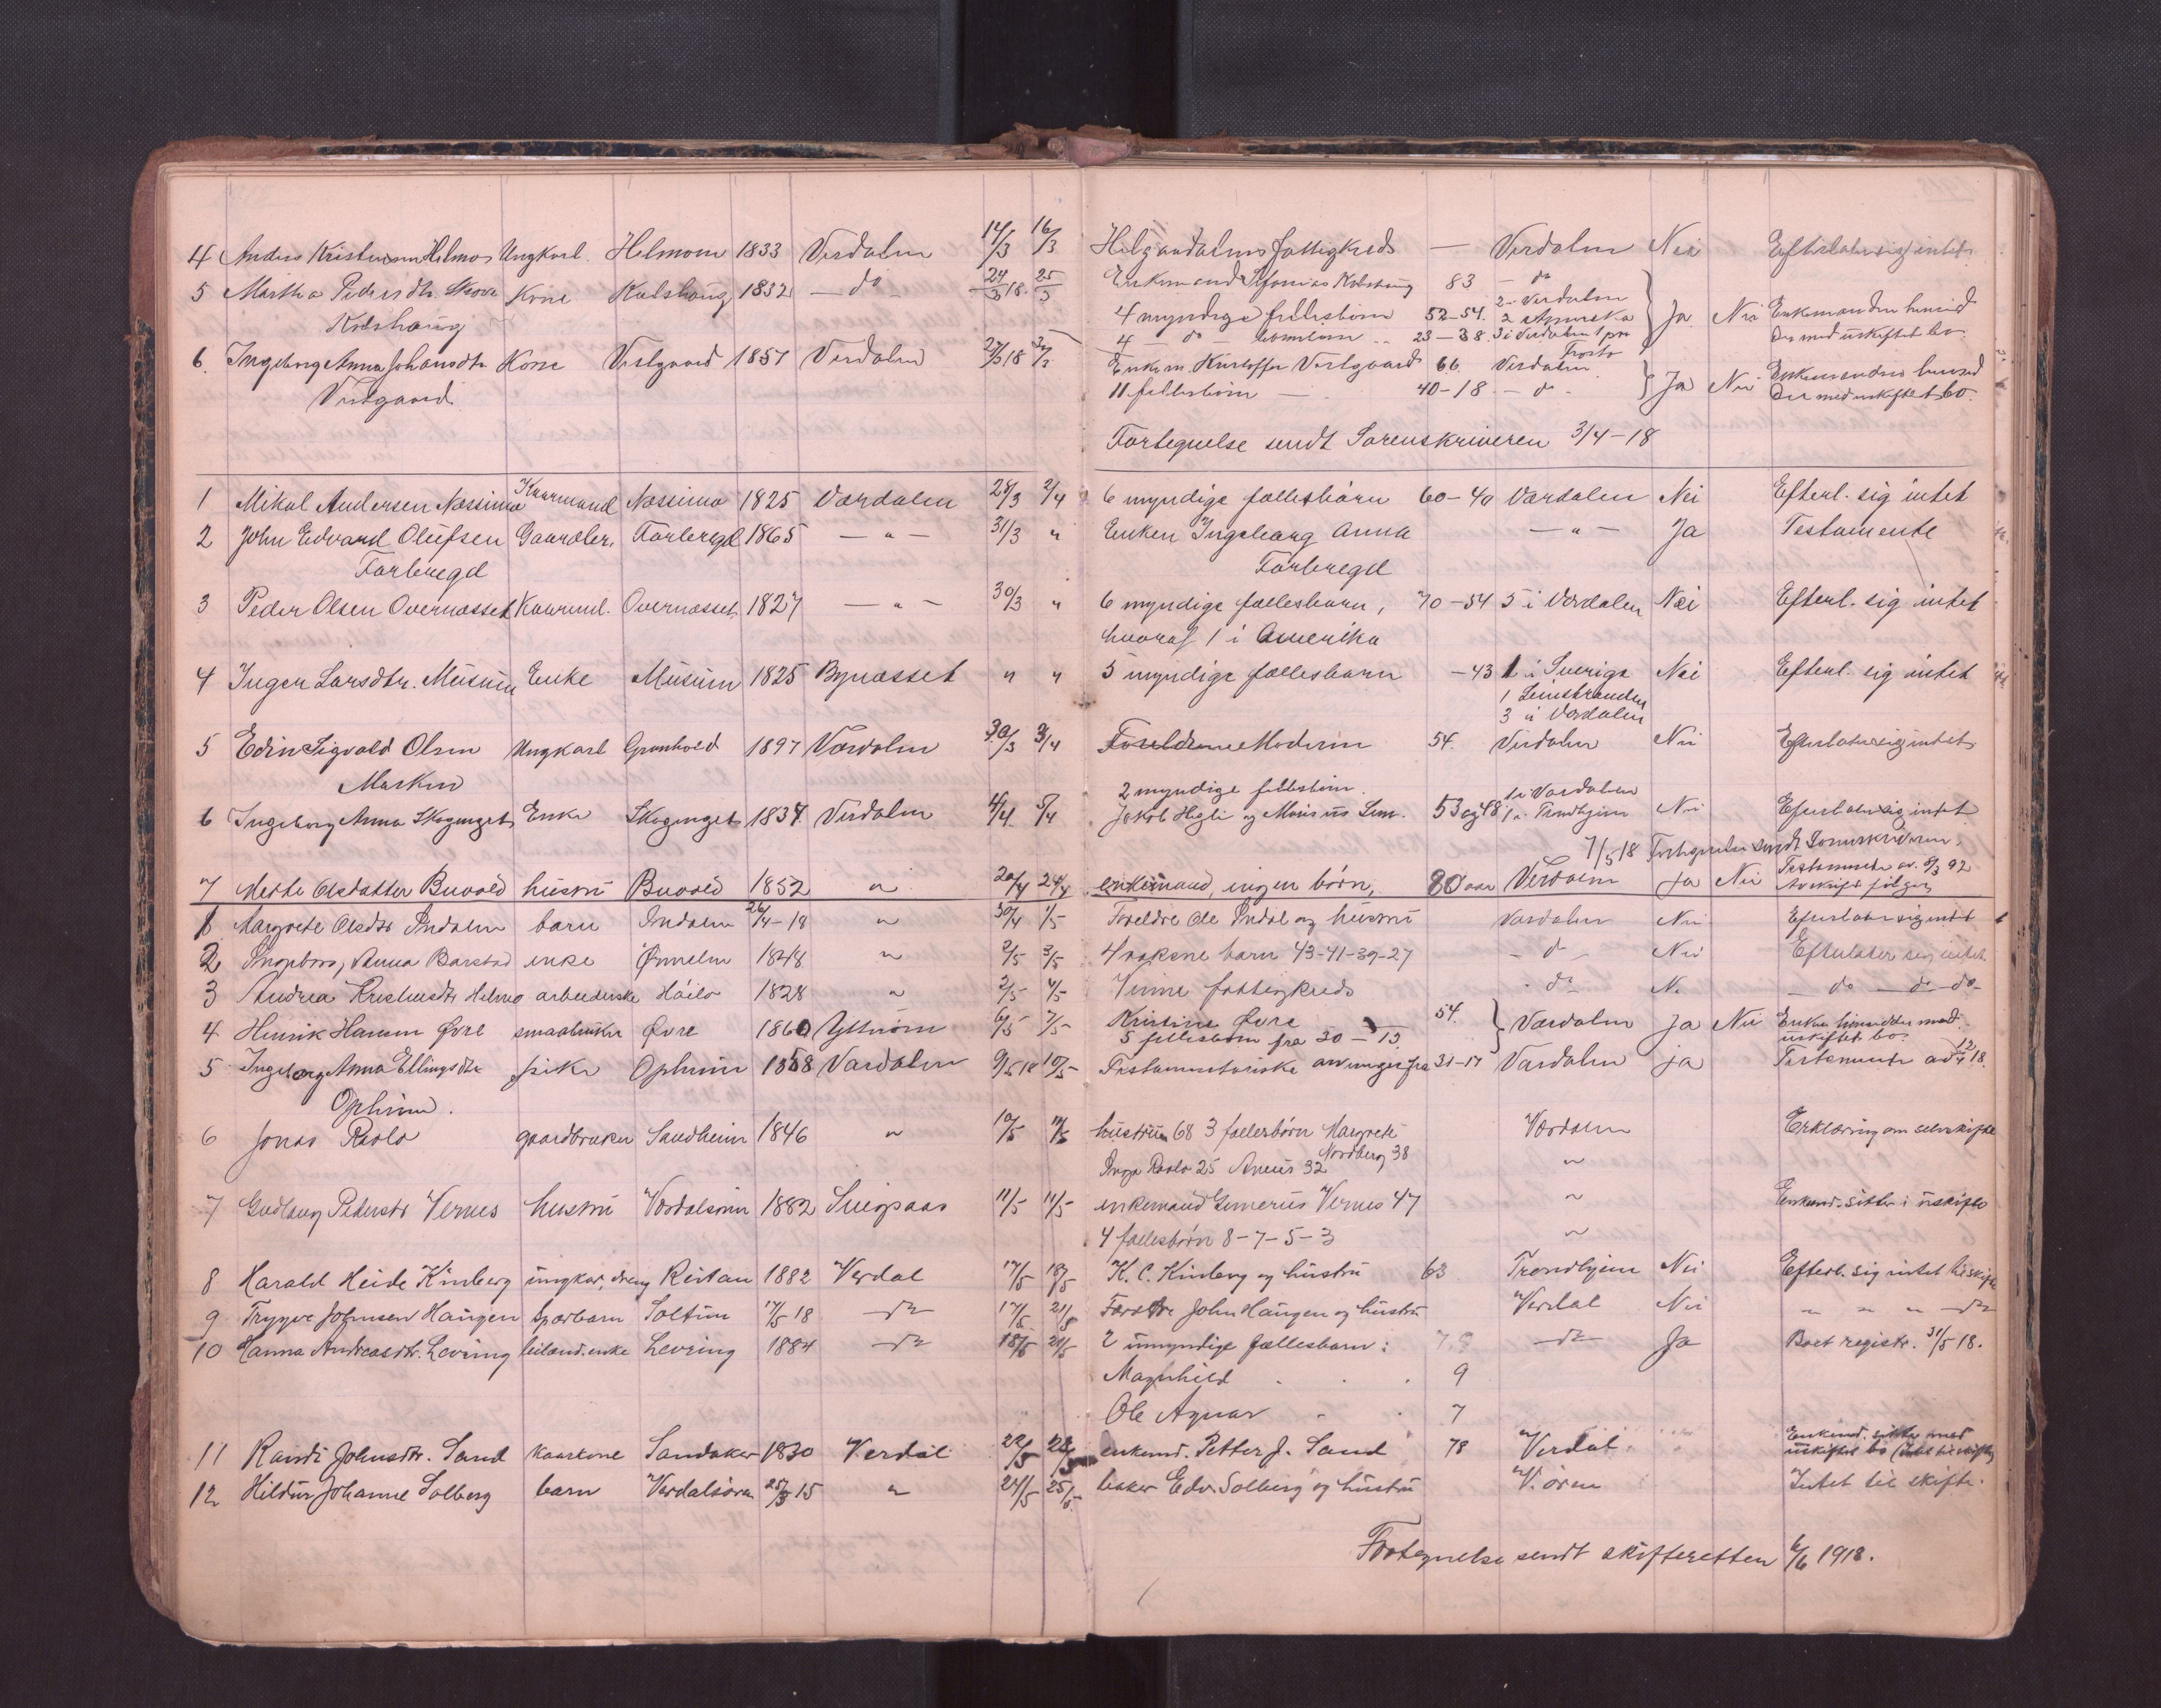 4 Anders Kristensen Helmo Ungkarl. Helmoen 1833 Værdalen 14/3 16/3 Helgaadalens fattigkreds — Værdalen Nei Efterlater sig intet
5 Martha Pedersdtr. Kone Kolshaug 1832 — do — 24/3 18. 25/3 Enkemand Sefanias Kolshaug 83 — do
Kolshaug 4 myndige fellesbørn 52-54. 2 Verdalen 2 Amerika } Ja Nei Enkemanden hensid
4 — do — 23-38 3 i Verdalen 1 paa Frosta der med uskiftet bo.
6. Ingeborg Anna Johansdtr. Kone Vestgaard 1851 Verdalen 27/3 18 Enkem. Kristoffer Vestgaard 66. Verdalen } Ja Nei Enkemanden hensid
Vestgaard. 11 fellesbörn — 40-18 — do - der med uskiftet bo.
Fortegnelse sendt Sorenskriveren 3/4-18
1 Mikal Andersen Næssimo Kaarmand Næssimo 1825 Værdalen 28/3 2/4 6 myndige fællesbørn 60-40 Værdalen Nei Efterl. sig intet
2 John Edvard Olufsen Gaardbr. Forbregd 1865 — " — 31/3 " Enken Ingeborg Anna — " — Ja Testamente
Forbregd Forbregd
3 Peder Olsen Overnæsset Kaarml. Overnæsset 1827 — " — 30/3 " 6 myndige fællesbørn, 70-54 5 i Værdalen Nei Efterl. sig intet
hvoraf 1 i Amerika
4 Inger Larsdtr. Musum Enke Musum 1825 Bynæsset " " 5 myndige fællesbørn -43 1 i Sverige Nei Efterl. sig intet
1 Leinstranden
3 i Værdalen
5 Edin Sigvald Olsen Ungkarl Grønhoed 1897 Værdalen 30/3 3/4 Foreldrene Moderen 54. Verdalen Nei Efterlater sig intet
Marken 2 myndige fellesbørn. 1 i Værdalen
6 Ingeborg Anna Skogenget Enke Skogenget 1834. Verdalen 4/4 5/4 Jakob Hegli og Lein. 53 og 48 1 i Trondhjem Nei Efterlater sig intet
7/5 18 Fortegnelse sendt Sorenskriveren.
7 Mette Olsdatter Buvold hustru Buvold 1852 " 20/4 24/4 enkemand, ingen børn, 80 aar Verdalen Ja Nei Testamente av. 8/3 92 Avskrift følger
1 Margrete Olsdtr Indalen barn Indalen 26/4-18 " 30/4 1/5 Foreldre Ole Indal og hustru Værdalen Nei Efterlater sig intet
2 Ingeborg Anna Barstad enke Ørmelen 1848 " 2/5 3/5 4 voksne barn 43-41-39-27 — do — Nei Efterlater sig intet
3 Andrea Kristensdtr Helmo arbeiderske 1828 " 2/5 4/5 Vinne fattigkreds - do - N. — do — do — do —
4 Henrik Hansen Øvre smaabruker Øvre 1860 Ytterøen 6/5 7/5 Kristine Øvre 54. } Værdalen Ja Nei Enken hensidder med
5 fellesbørn fra 30 — 15. uskiftet bo.
5 Ingeborg Anna Ellingsdtr pike Ophim 1858 Værdalen 9/5 18 10/5 Testamentariske arvinger fra 31-17 Værdalen ja Testamente av 12/4 18.
Ophim.
6 Jonas Raolo gaardbruker Sandheim 1846 " 10/5 hustruen 68 3 fællesbørn Margrete Værdalen Erklæring om selvskifte
Nordberg 38
Inga Raolo 25 32 "
7 Gudlaug Pedersdtr Vernes hustru Værdalsøren 1882 Snegpaas 11/5 11/5 enkemand Vernes 47 " Enkemd. sitter i uskifte
4 fællesbörn 8-7-5-3 "
8 Harald Heide Kinberg ungkar, dreng Reitan 1882 Verdal 17/5 18/5 K. C. Kinberg og hustru 63 Trondhjem Nei Efterl. sig intet til skifte
9 Trygve Johnsen Haugen spædbarn Soltun 17/5 18 — do — 17/5 21/5 John Haugen og hustru Verdal Nei " " " — do
10 Hanna Andreasdtr. Levring leiland.enke Levring 1884 — do — 18/5 21/5 2 umyndige fællesbarn: 7.9 — do — Ja Boet registr. 31/5 18.
Magnhild . . . 9
Ole Agnar . . 7
11 Randi Johnsdtr. Sand kaarkone Sandaker 1830 Verdal 22/5 23/5 enkemd. Petter J. Sand 78 Verdal. Enkemd. sitter med
uskiftet bo (Intet til skifte)
12 Hildur Johanne Solberg barn Verdalsøren 25/3 15 " 24/5 25/5. baker Edv. Solberg og hustru V.ören Intet til skifte.
Fortegnelse sendt skifteretten 6/6 1918.